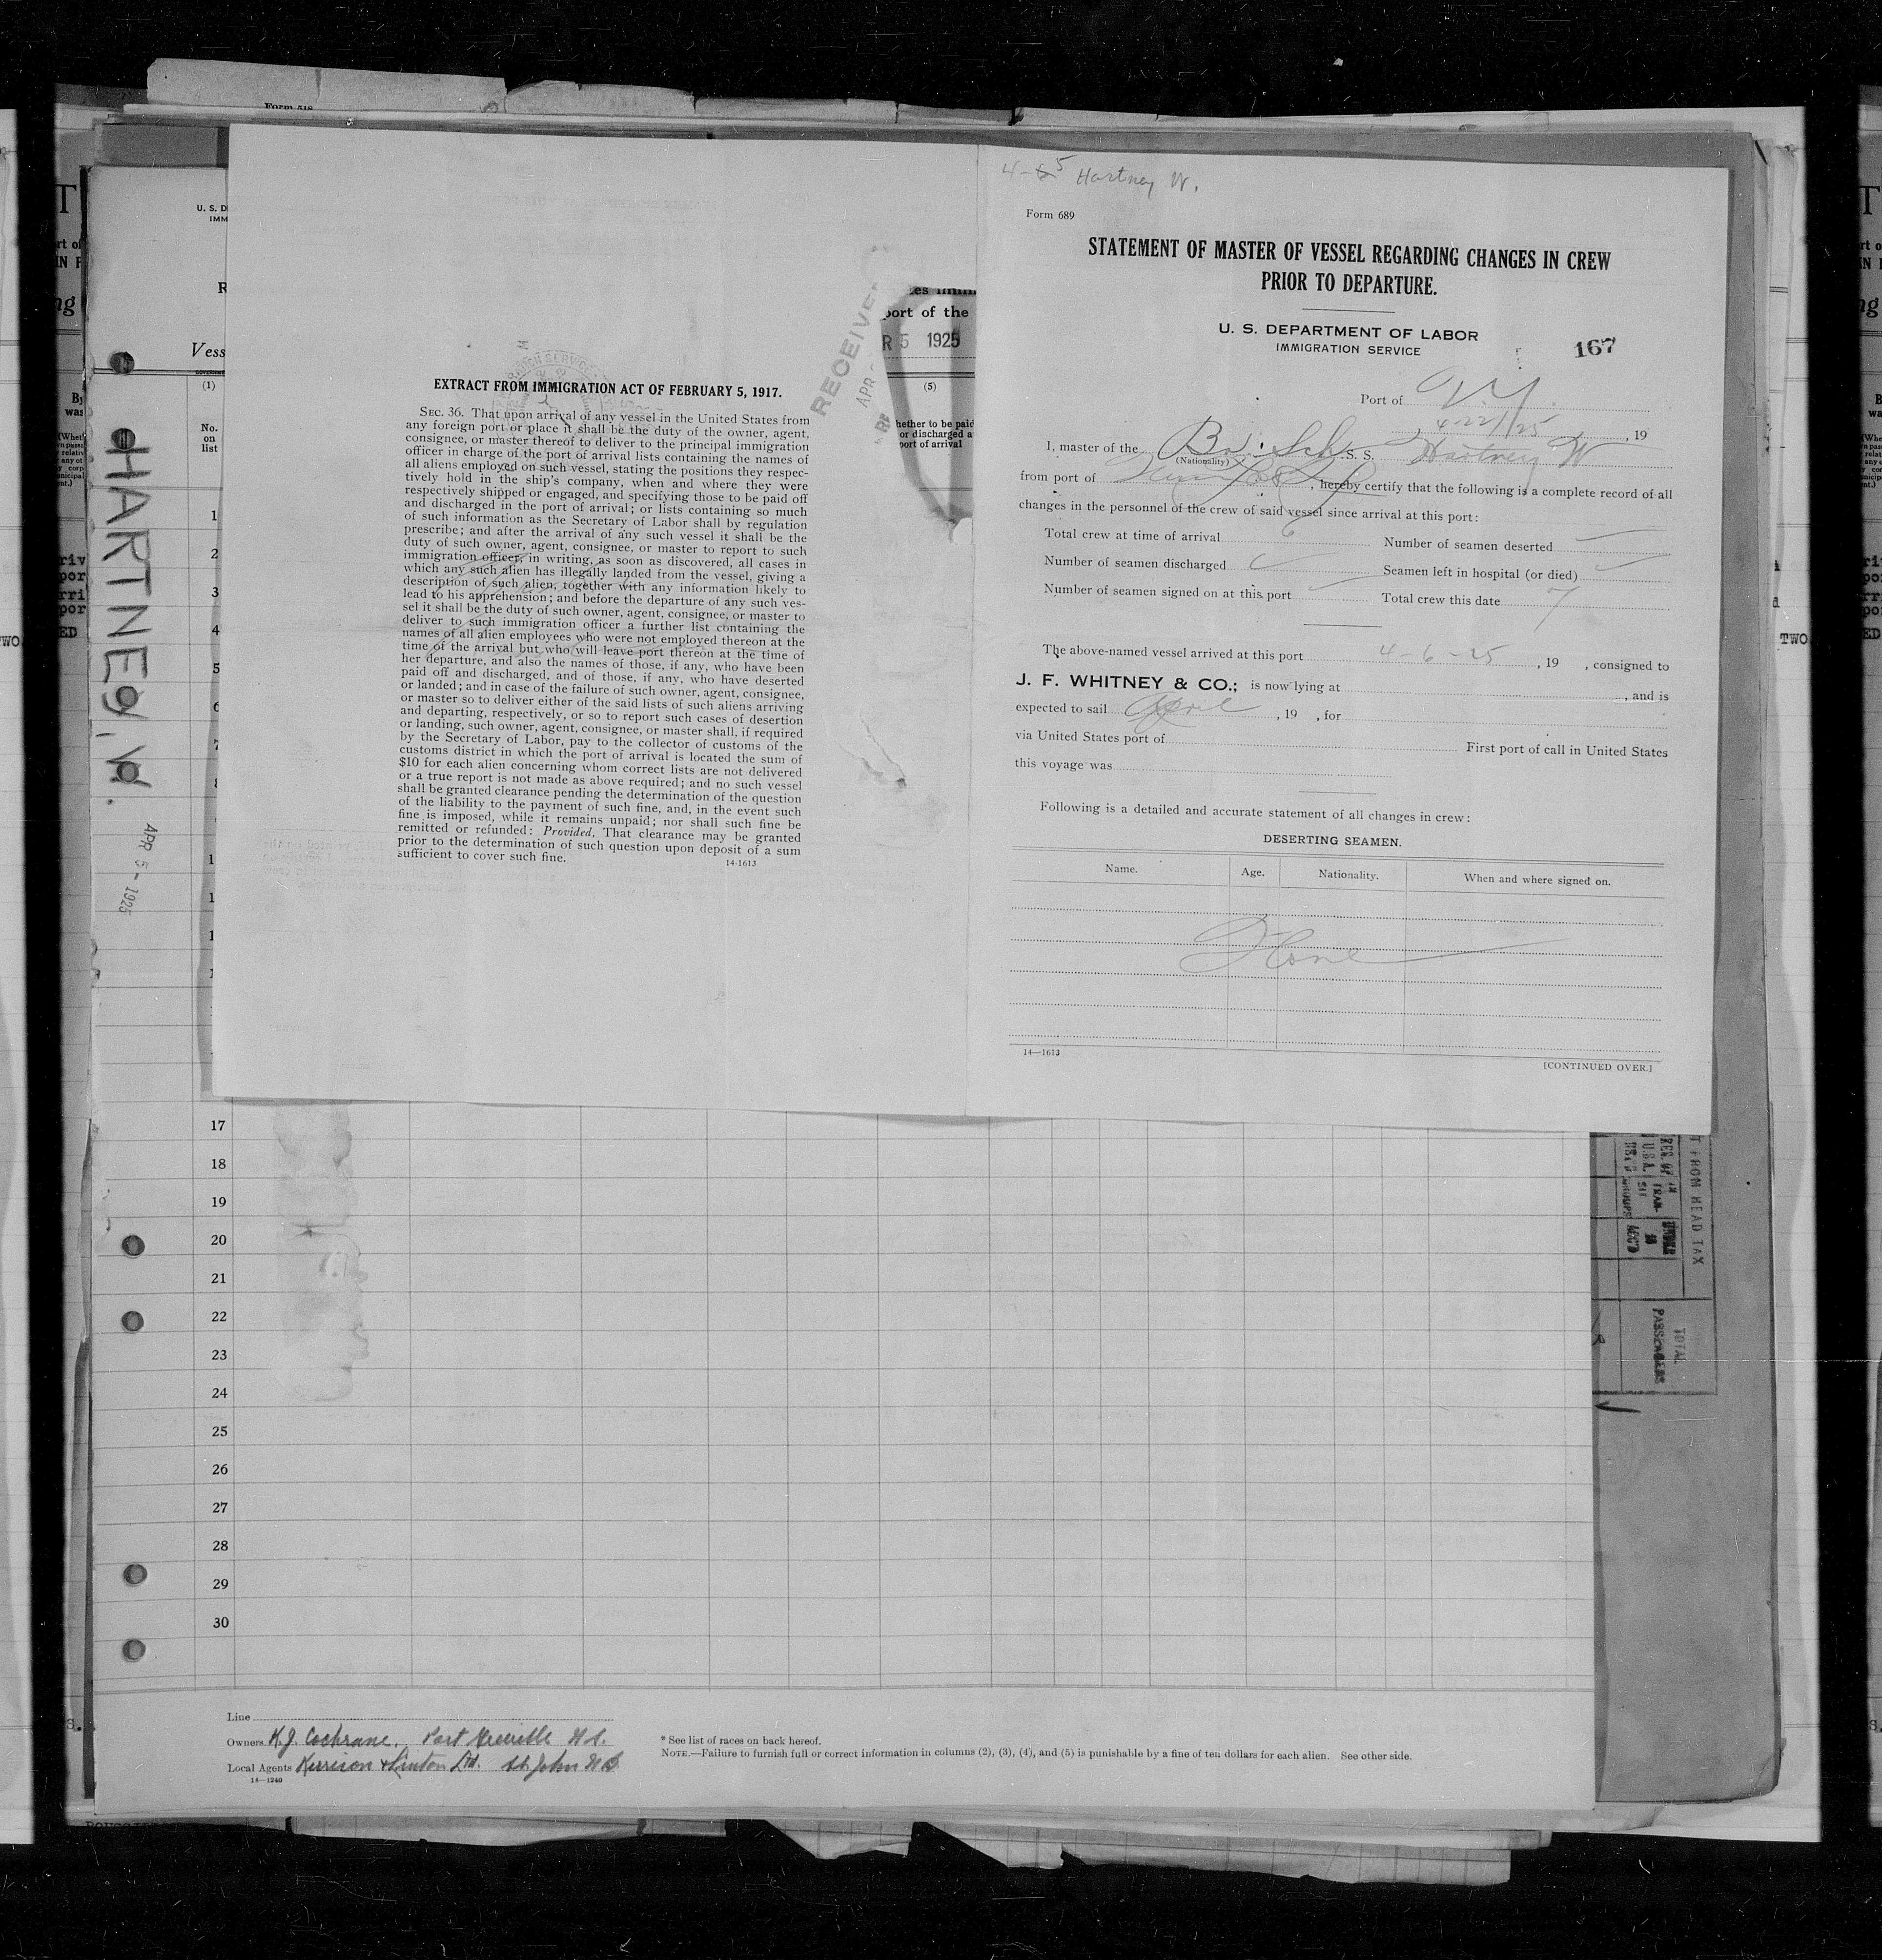 4-5 Hartney W.
Form 689
STATEMENT OF MASTER OF VESSEL REGARDING CHANGES IN CREW
PRIOR TO DEPARTURE.
U. S. DEPARTMENT OF LABOR
IMMIGRATION SERVICE
167
Port of N.Y.
4-22/25, 19
I, master of the Br. Sch. S. S. Hartney W
(Nationality)
from port of , hereby certify that the following is a complete record of all
changes in the personnel of the crew of said vessel since arrival at this port:
Total crew at time of arrival 6 Number of seamen deserted
Number of seamen discharged Seamen left in hospital (or died)
Number of seamen signed on at this port Total crew this date 7
The above-named vessel arrived at this port 4-6-25, 19 , consigned to
J. F. WHITNEY & CO.; is now lying at , and is
expected to sail April, 19 , for
via United States port of First port of call in United States
this voyage was
Following is a detailed and accurate statement of all changes in crew:
DESERTING SEAMEN.
Name. Age. Nationality. When and where signed on.
None
14—1613
[CONTINUED OVER.]
EXTRACT FROM IMMIGRATION ACT OF FEBRUARY 5, 1917.
SEC. 36. That upon arrival of any vessel in the United States from
any foreign port or place it shall be the duty of the owner, agent,
consignee, or master thereof to deliver to the principal immigration
officer in charge of the port of arrival lists containing the names of
all aliens employed on such vessel, stating the positions they respec-
tively hold in the ship's company, when and where they were
respectively shipped or engaged, and specifying those to be paid off
and discharged in the port of arrival; or lists containing so much
of such information as the Secretary of Labor shall by regulation
prescribe; and after the arrival of any such vessel it shall be the
duty of such owner, agent, consignee, or master to report to such
immigration officer, in writing, as soon as discovered, all cases in
which any such alien has illegally landed from the vessel, giving a
description of such alien, together with any information likely to
lead to his apprehension; and before the departure of any such ves-
sel it shall be the duty of such owner, agent, consignee, or master to
deliver to such immigration officer a further list containing the
names of all alien employees who were not employed thereon at the
time of the arrival but who will leave port thereon at the time of
her departure, and also the names of those, if any, who have been
paid off and discharged, and of those, if any, who have deserted
or landed; and in case of the failure of such owner, agent, consignee,
or master so to deliver either of the said lists of such aliens arriving
and departing, respectively, or so to report such cases of desertion
or landing, such owner, agent, consignee, or master shall, if required
by the Secretary of Labor, pay to the collector of customs of the
customs district in which the port of arrival is located the sum of
$10 for each alien concerning whom correct lists are not delivered
or a true report is not made as above required; and no such vessel
shall be granted clearance pending the determination of the question
of the liability to the payment of such fine, and, in the event such
fine is imposed, while it remains unpaid; nor shall such fine be
remitted or refunded: Provided, That clearance may be granted
prior to the determination of such question upon deposit of a sum
sufficient to cover such fine.
14-1613
RECEIVED
APR
port of the
R 5 1925
(5)
hether to be paid
or discharged a
port of arrival
Form 518
U. S. D
IMM
R
Vess
(1)
No.
on
list
1
2
3
4
5
6
7
HARTNEY, W.
APR 5 - 1925
17
18
19
20
21
22
23
24
25
26
27
28
29
30
T FROM HEAD TAX
TOTAL
PASSENGERS
TWO
Line
Owners K.J. Cochrane, Port Greville N.S.
Local Agents Kerrison & Linton Ltd. St. John N B
14—1240
* See list of races on back hereof.
NOTE.—Failure to furnish full or correct information in columns (2), (3), (4), and (5) is punishable by a fine of ten dollars for each alien. See other side.